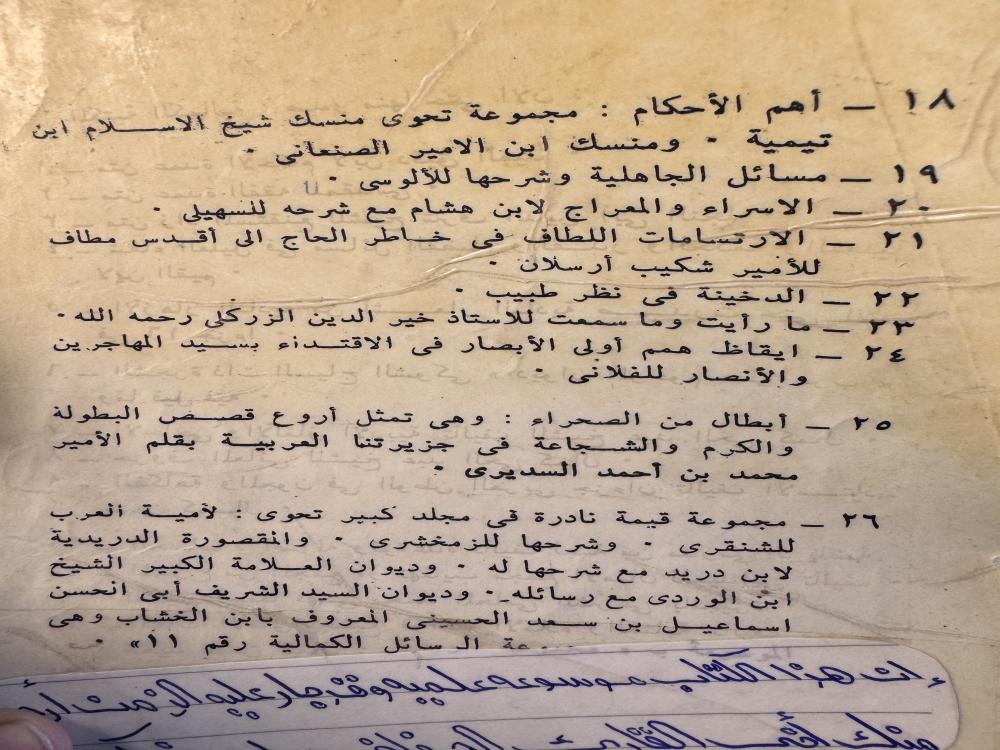 ١٨ — أهم الأحكام : مجموعة تحوى منسك شيخ الاسلام ابن
تيمية ٠ ومنسك ابن الامير الصنعانى ٠
١٩ — مسائل الجاهلية وشرحها للألوسى ٠
٢٠ — الاسراء والمعراج لابن هشام مع شرحه للسهيلى ٠
٢١ — الارتسامات اللطاف فى خاطر الحاج الى أقدس مطاف
للأمير شكيب أرسلان ٠
٢٢ — الدخينة فى نظر طبيب ٠
٢٣ — ما رأيت وما سمعت للاستاذ خير الدين الزركلى رحمه الله ٠
٢٤ — ايقاظ همم أولى الأبصار فى الاقتداء بسيد المهاجرين
والأنصار للفلانى ٠
٢٥ — أبطال من الصحراء : وهى تمثل أروع قصص البطولة
والكرم والشجاعة فى جزيرتنا العربية بقلم الأمير
محمد بن أحمد السديرى ٠
٢٦ — مجموعة قيمة نادرة فى مجلد كبير تحوى : لأمية العرب
للشنقرى ٠ وشرحها للزمخشرى ٠ والمقصورة الدريدية
لابن دريد مع شرحها له ٠ وديوان العلامة الكبير الشيخ
ابن الوردى مع رسائله ٠ وديوان السيد الشريف أبى الحسن
اسماعيل بن سعد الحسينى المعروف بابن الخشاب وهى
الرسائل الكمالية رقم «١١» ٠
إن هذا الكتاب موسوعه علميه وقد جار عليه الزمن